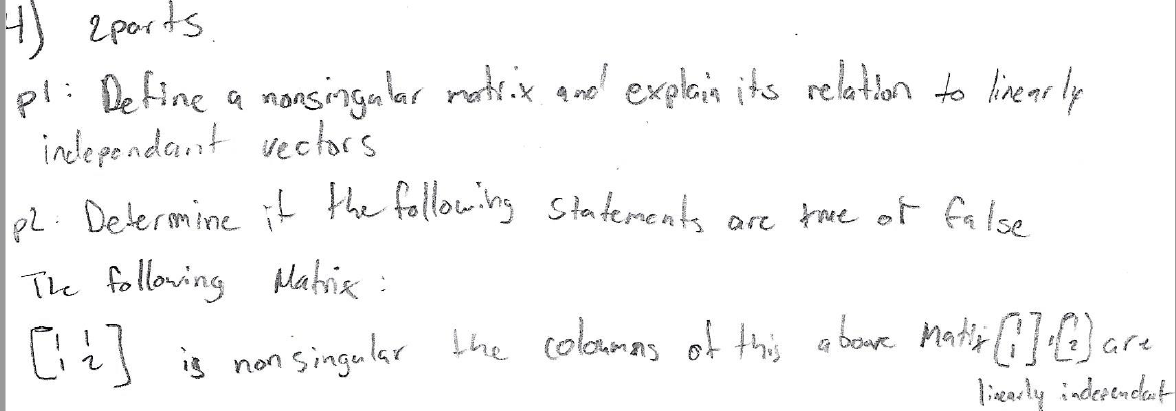 4) 2parts.
p1: Define a nonsingular matrix and explain its relation to linearly
independant vectors
p2: Determine if the following statements are true or false
The following Matrix:
[1 1
1 2] is nonsingular the coloumns of this above Matrix [1
1], [1
2] are
linearly independent